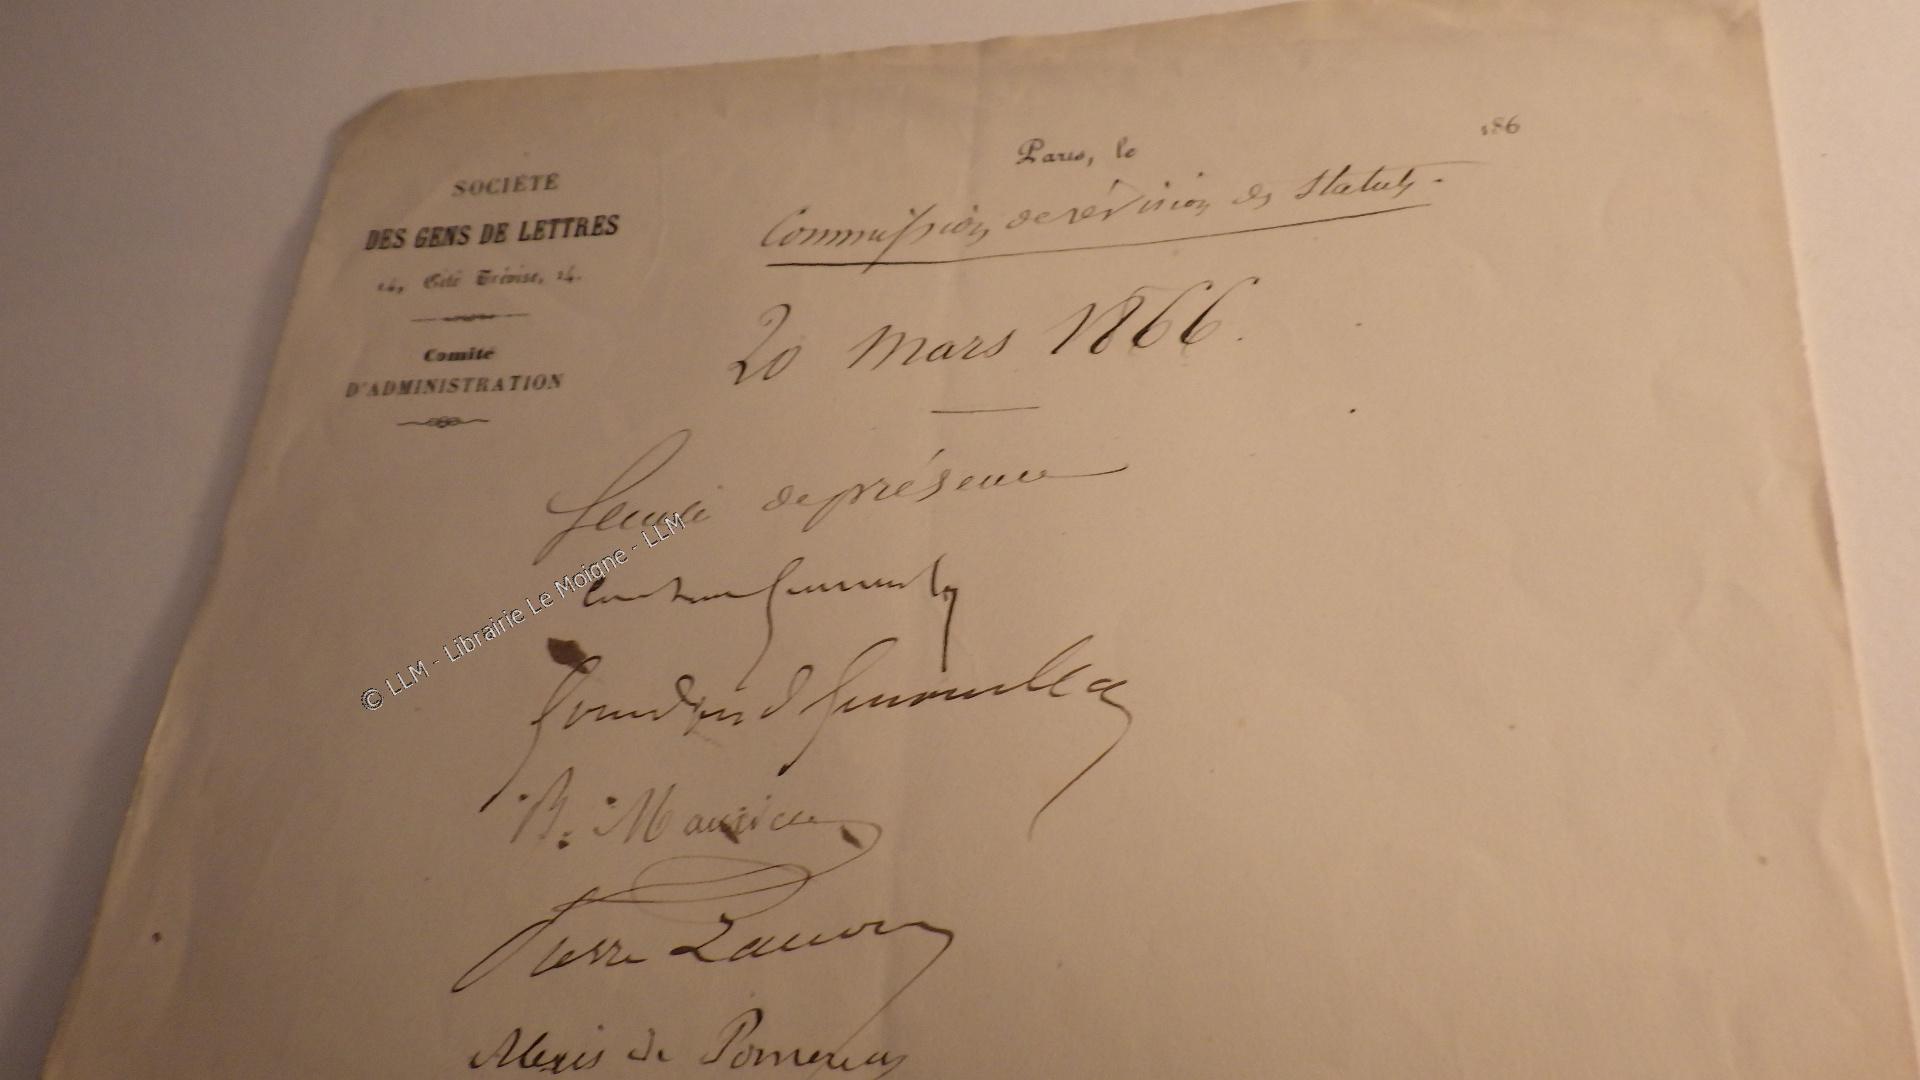 SOCIÉTÉ
DES GENS DE LETTRES
14, Cité Trévise, 14.
Comité
D'ADMINISTRATION
Paris, le 186
Commission de révision des Statuts.
20 Mars 1866.
feuille de présence
Gourdon de Genouillac
B. Maurice
Pierre Zaccone
Alexis de Pomereu
© LLM - Librairie Le Moigne - LLM